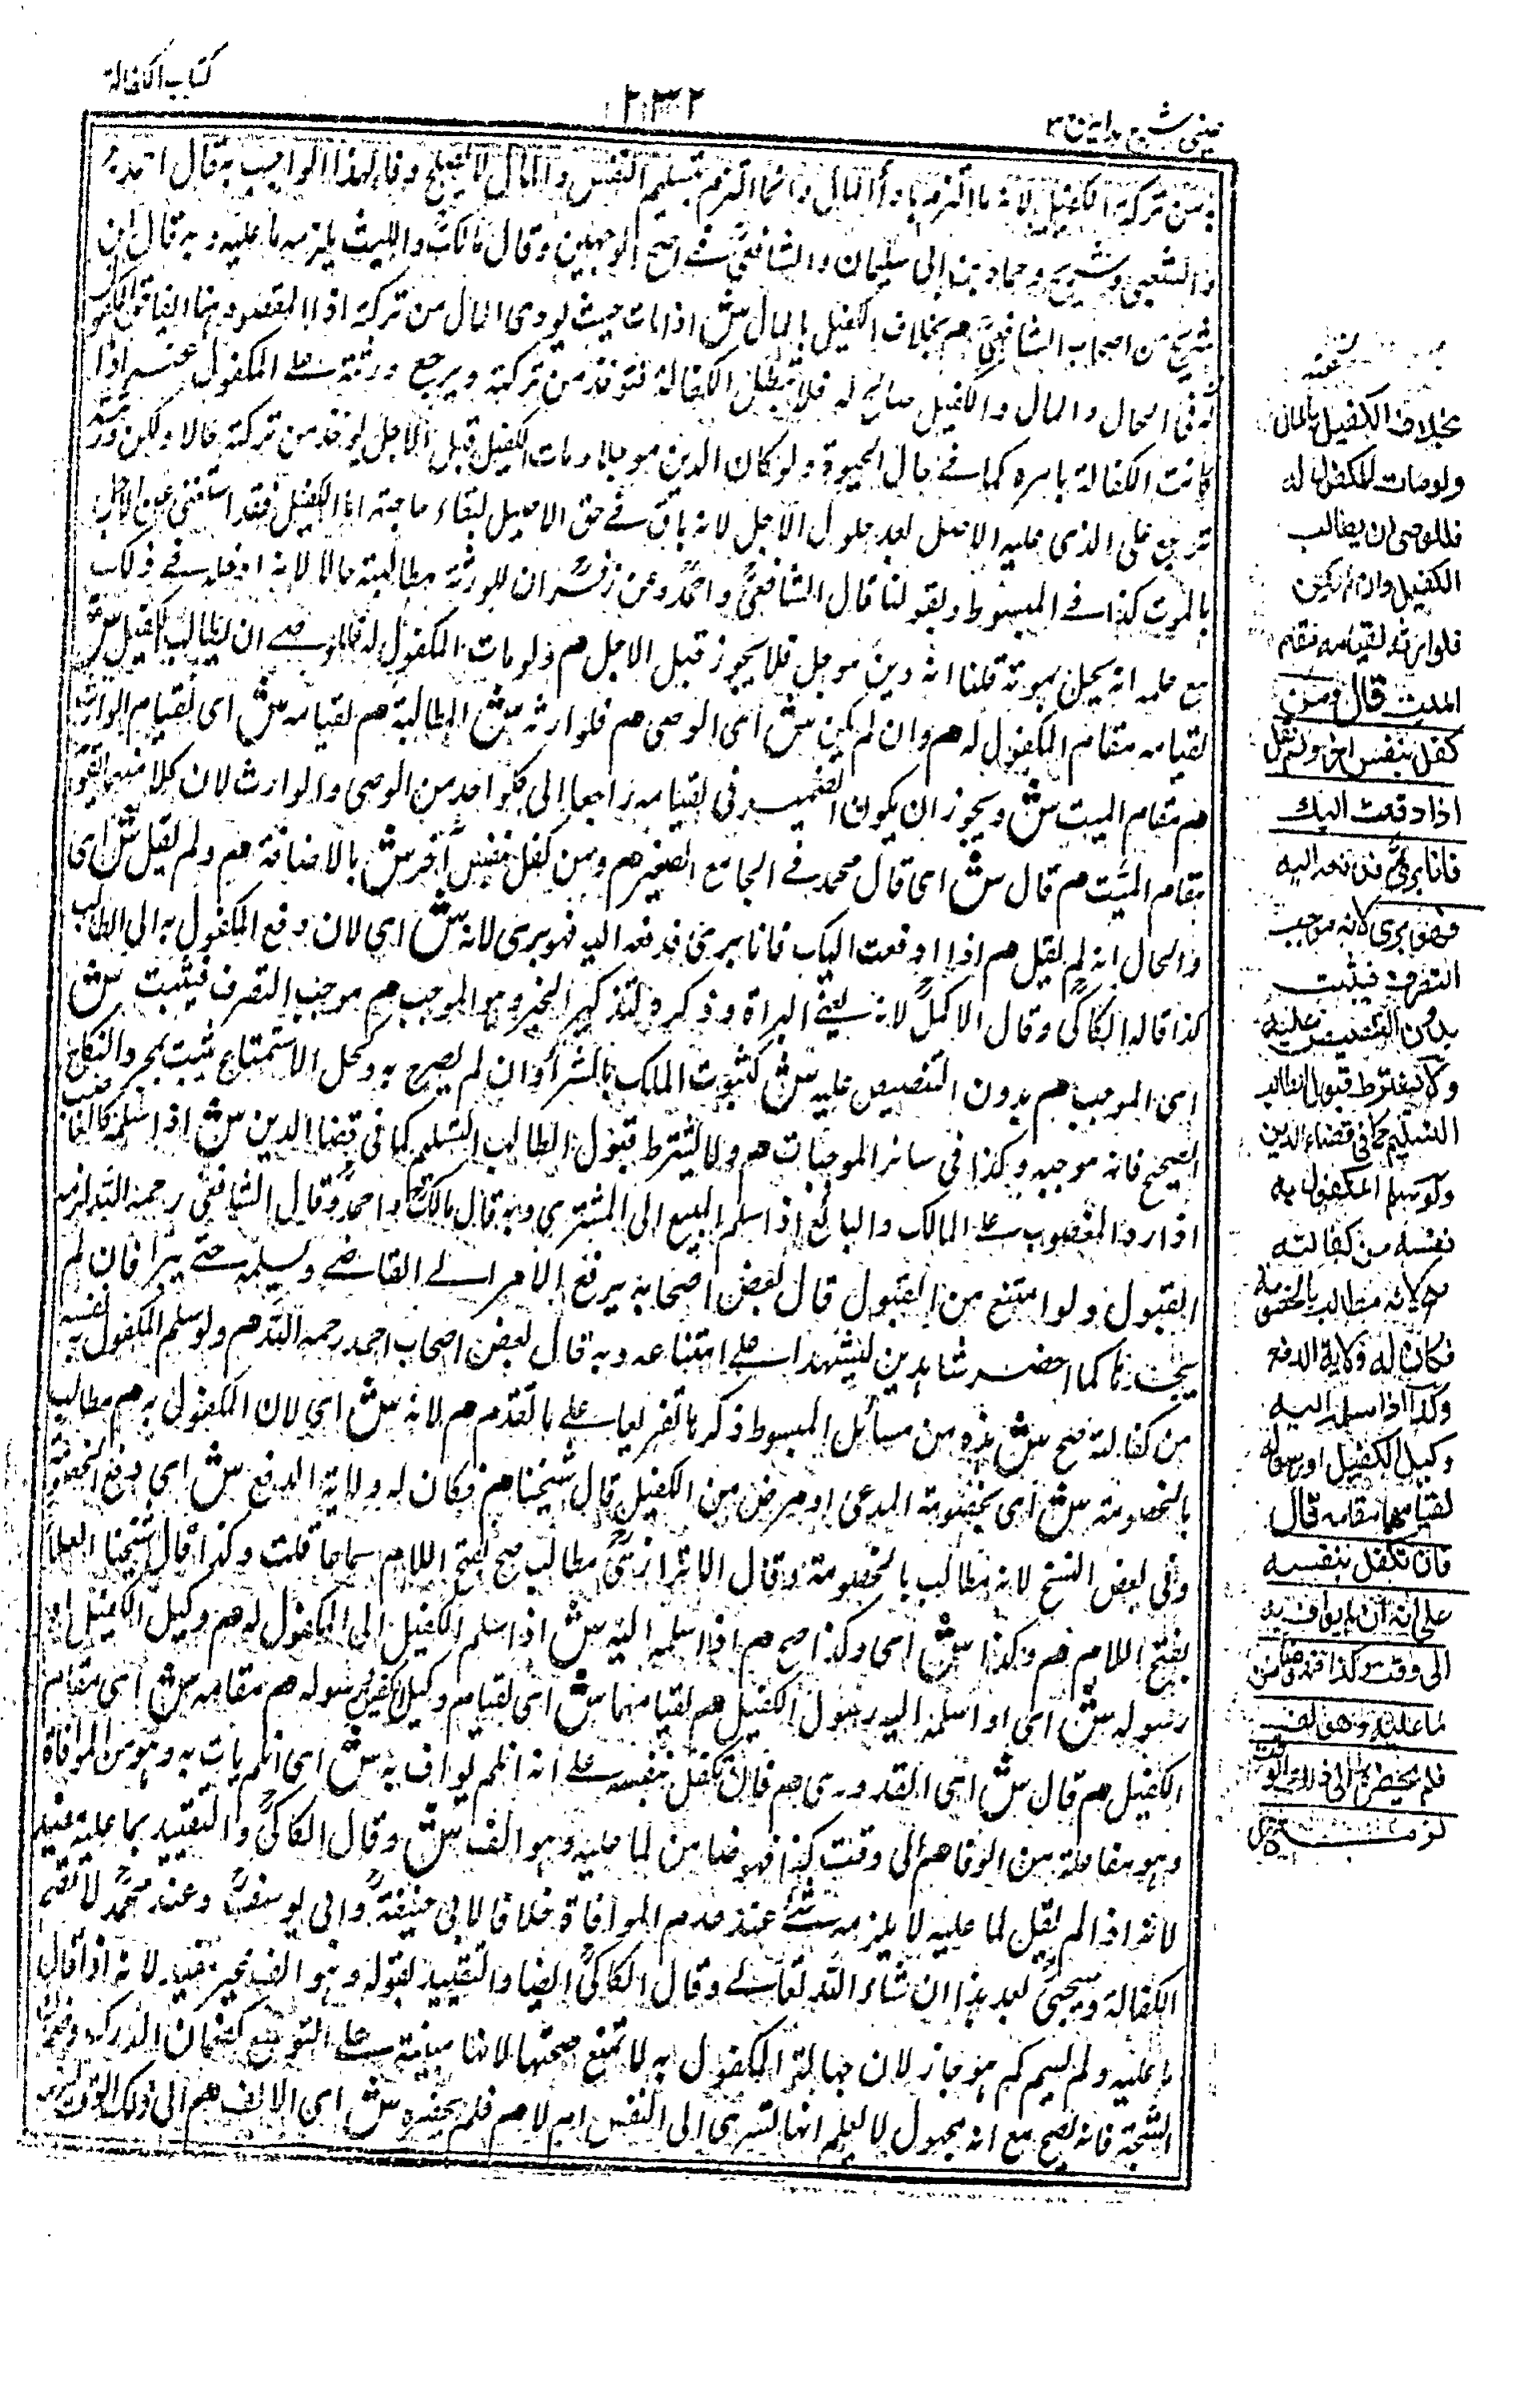 كتاب الكفالة
٢٣٢
عيني شرح هداية ج ٣
من تركة الكفيل لانه ما التزم باداء المال وانما التزم تسليم النفس والمال لا يصلح وفاء لهذا الواجب به قال احمد
والشعبي وشريح وحماد بن ابى سليمان والشافعي فى اصح الوجهين وقال مالك والليث يلزمه ما عليه وبه قال ابن
شريح من اصحاب الشافعي هم بخلاف الكفيل بالمال ش اذا مات حيث يودى المال من تركته اذا المقصود هنا ايفاء
فى الحال والمال والكفيل صالح له فلا تبطل الكفالة فتؤخذ من تركته ويرجع ورثته على المكفول عنه اذا
كانت الكفالة بامره كما فى حال الحيوة ولو كان الدين موجلا ومات الكفيل قبل الاجل يوخذ من تركته حالا ولكن ورثته
ترجع على الذى عليه الاصل بعد حلول الاجل لانه باق فى حق الاصيل لبقاء حاجته اما الكفيل فقد استغنى عن الاجل
بالموت كذا فى المبسوط وبقولنا قال الشافعي واحمد وعن زفر ان للورثة مطالبته حالا لانه ادخله فى ذلك
مع علمه انه يحل بموته قلنا انه دين موجل فلا يجوز قبل الاجل هم ولو مات المكفول له فللوصى ان يطالب الكفيل ش
لقيامه مقام المكفول له هم وان لم يكن ش اى الوصى هم فلوارثه ش المطالبة هم لقيامه ش اى لقيام الوارث
هم مقام الميت ش ويجوز ان يكون الضمير فى لقيامه راجعا الى كلواحد من الوصى والوارث لان كلا منهما يقوم
مقام الميت هم قال ش اى قال محمد فى الجامع الصغير هم ومن كفل بنفس آخر ش بالاضافة هم ولم يقل ش اى
والحال انه لم يقل هم اذا دفعت اليك فانا برئ فدفعه اليه فهو برى لانه ش اى لان دفع المكفول به الى الطالب
كذا قاله الكاكى وقال الاكمل لانه يعنى البراة وذكره لتذكير الخبر وهو الموجب هم موجب التصرف فيثبت ش
اى الموجب هم بدون التنصيص عليه ش كثبوت الملك بالشراء وان لم يصرح به وكحل الاستمتاع يثبت بمجرد النكاح
الصحيح فانه موجبه وكذا فى سائر الموجبات هم ولا يشترط قبول الطالب التسليم كما فى قضاء الدين ش اذا سلمه كالغاصب
اذا رد المغصوب على المالك والبائع اذا سلم المبيع الى المشترى وبه قال مالك واحمد وقال الشافعى رحمه الله لزمه
القبول ولو امتنع من القبول قال بعض اصحابه يرفع الامر الى القاضى ويسلمه حتى يبرأ فان لم
يجد حاكما احضر شاهدين ليشهدا على امتناعه وبه قال بعض اصحاب احمد رحمه الله هم ولو سلم المكفول به نفسه
من كفالته صح ش هذه من مسائل المبسوط ذكرها تفريعا على ما تقدم هم لانه ش اى لان المكفول به هم مطالب
بالخصومة ش اى بخصومة المدعى او مرض من الكفيل قال شيخنا هم فكان له ولاية الدفع ش اى دفع الخصومة
وفى بعض النسخ لانه مطالب بالخصومة وقال الاترازى مطالب صح بفتح اللام سماعا قلت وكذا قال شيخنا العلاء
بفتح اللام هم وكذا ش اى وكذا صح هم اذا سلمه اليه ش اذا سلم الكفيل الى المكفول له هم وكيل الكفيل او
رسوله ش اى او اسلمه اليه رسول الكفيل هم لقيامهما ش اى لقيام وكيل الكفيل ورسوله هم مقامه ش اى مقام
الكفيل هم قال ش اى القدورى هم فان تكفل بنفسه على انه ان لم يواف به ش اى ان لم يات به وهو من الموافاة
وهو مفاعلة من الوفا هم الى وقت كذا فهو ضامن لما عليه وهو الف ش وقال الكاكى والتقييد بما عليه مفيد
لانه اذا لم يقل لما عليه لا يلزمه شئ عند عدم الموافاة خلافا لابى حنيفة وابى يوسف وعند محمد لا تصح
الكفالة وسيجئ بعد هذا ان شاء الله تعالى وقال الكاكى ايضا والتقييد بقوله وهو الف غير مفيد لانه اذا قال
ما عليه ولم يسم كم هو جاز لان جهالة المكفول به لا تمنع صحتها لانها مبنية على التوسع كضمان الدرك وضمان
الشجة فانه يصح مع انه مجهول لا يعلم انها تسرى الى النفس ام لا هم فلم يحضره ش اى الالف هم الى ذلك الوقت لزمه
بخلاف الكفيل بالمال
ولو مات المكفول له
فللوصى ان يطالب
الكفيل وان لم يكن
فلوارثه لقيامه مقام
الميت قال ومن
كفل بنفس اخر ولم يقل
اذا دفعت اليك
فانا برئ فدفعه اليه
فهو برى لانه موجب
التصرف فيثبت
بدون التنصيص عليه
ولا يشترط قبول الطالب
التسليم كما فى قضاء الدين
ولو سلم المكفول به
نفسه من كفالته
صح لانه مطالب بالخصومة
فكان له ولاية الدفع
وكذا اذا سلمه اليه
وكيل الكفيل او رسوله
لقيامهما مقامه قال
فان تكفل بنفسه
على انه ان لم يواف به
الى وقت كذا فهو ضامن
لما عليه وهو الف
فلم يحضره الى ذلك الوقت
لزمه